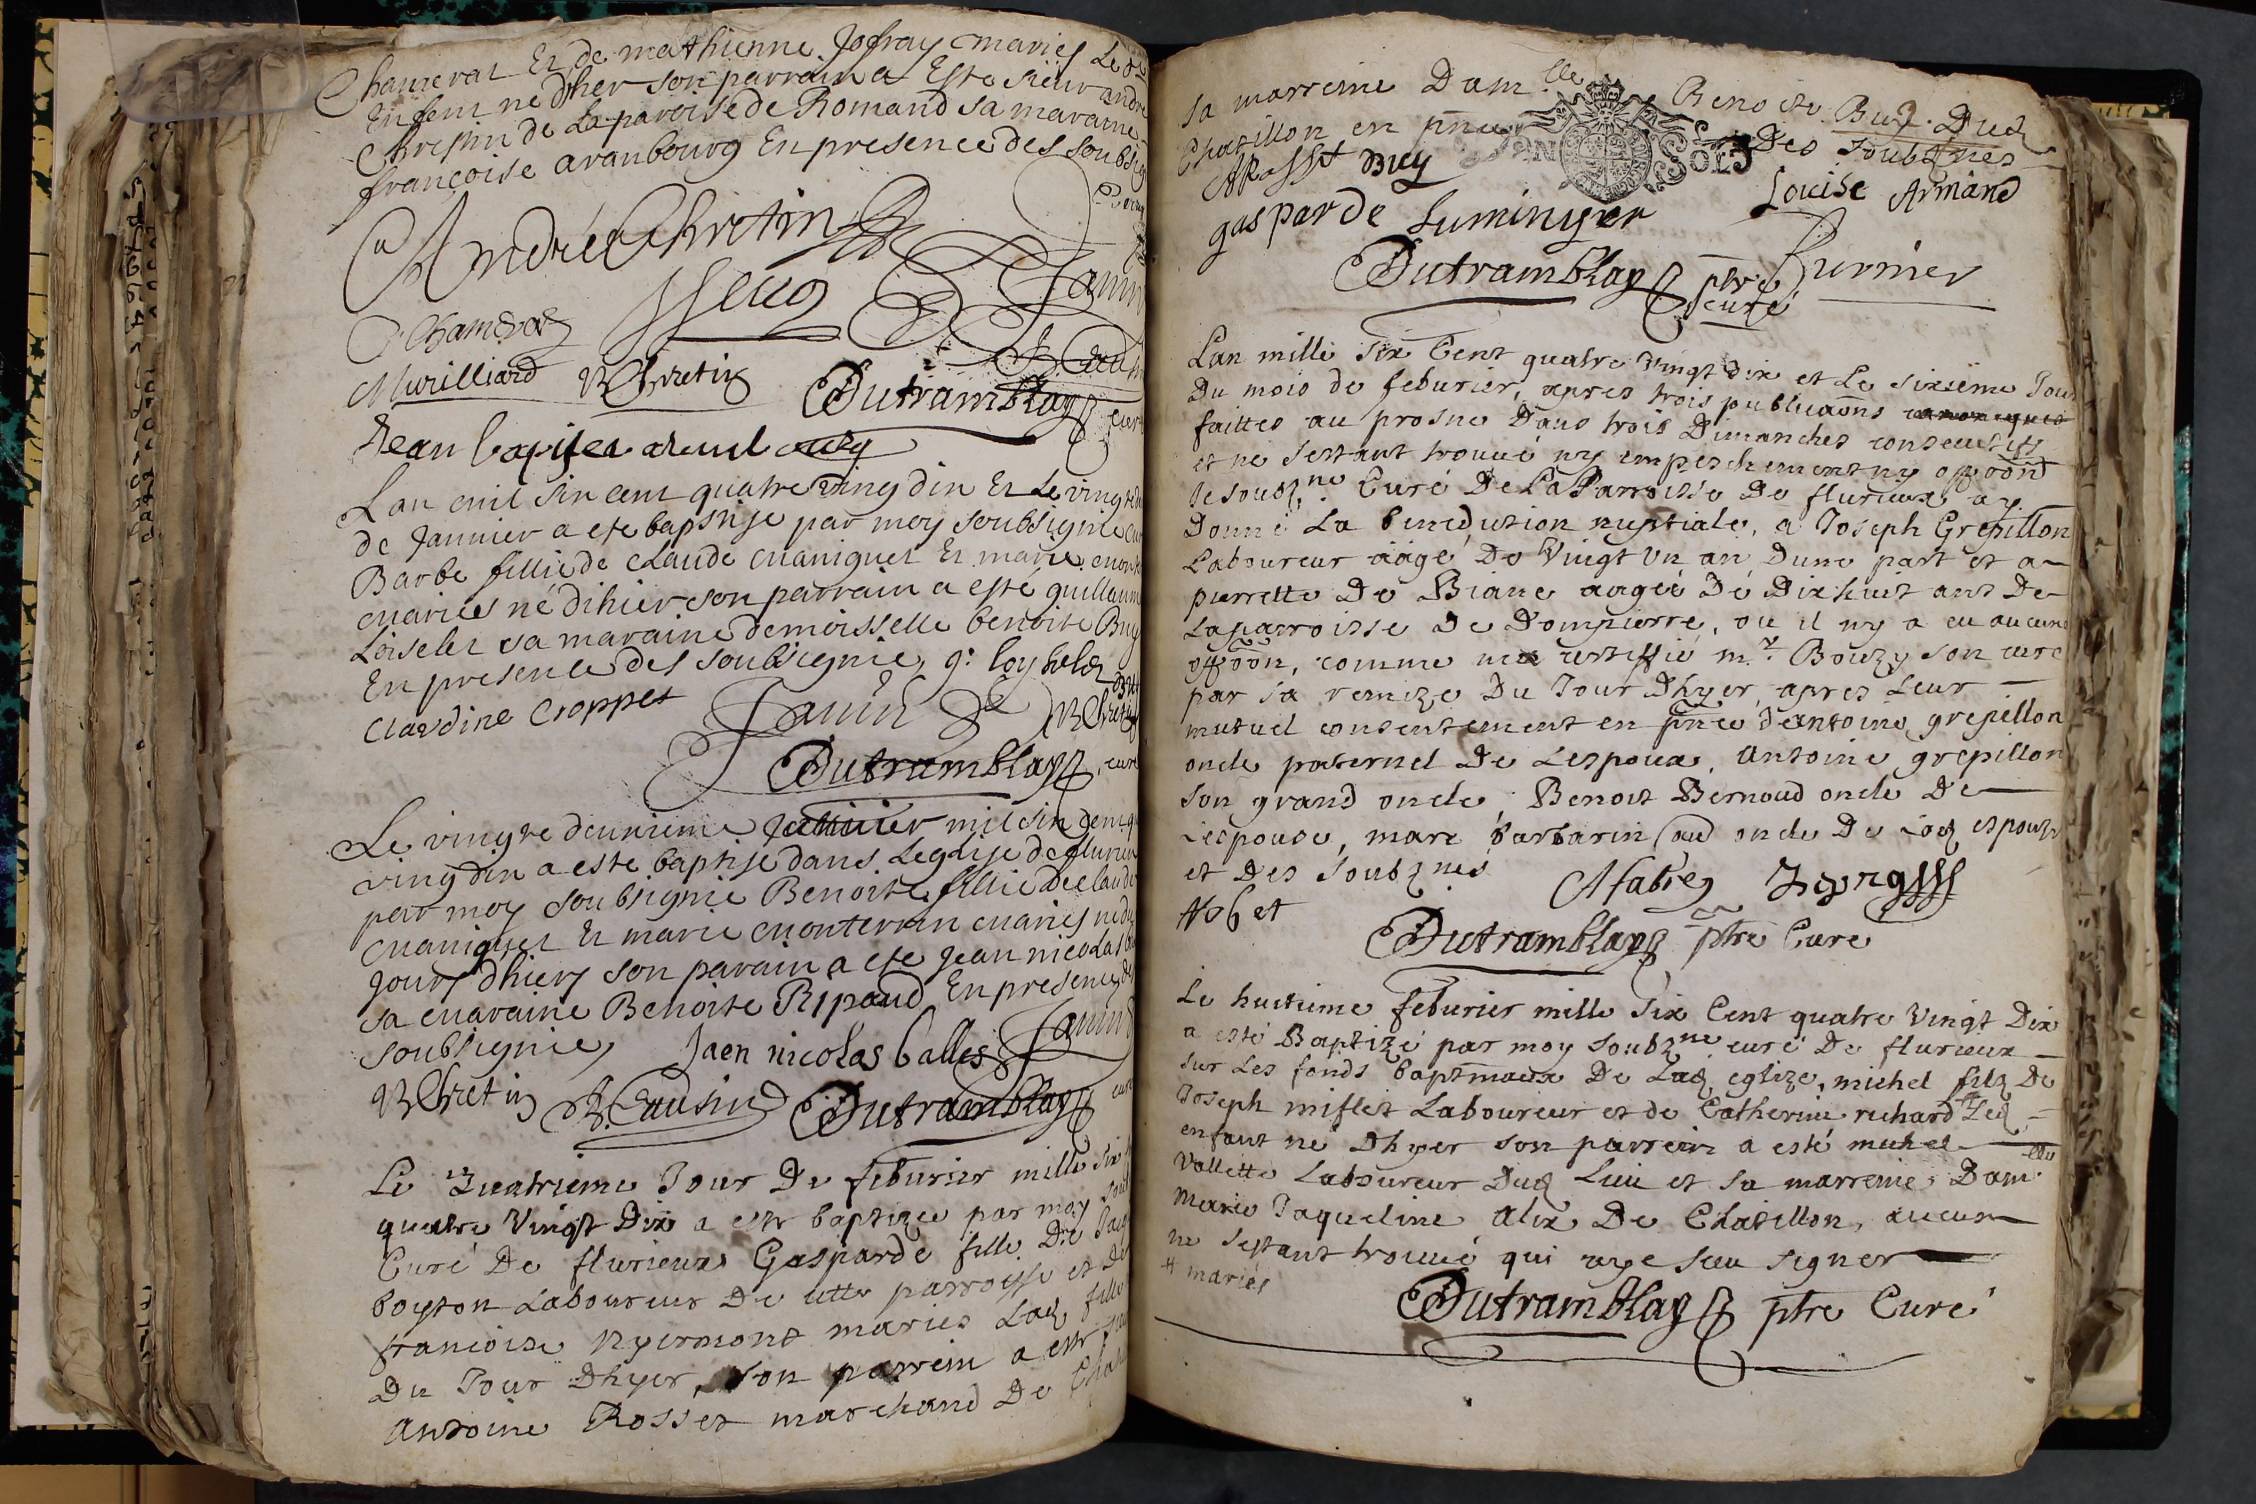 Chameras Et de mathienne Jofray maries Le d
Enfent ne dhier son parrain a Este sieur andre
Chrestin de La paroisse de Romand sa maraine
françoise aranbourg En presence des soubsig
André Chretin
Jamin
Chameras
Murilliard BChretin Dutramblay curé
Jean baptiste
Lan mil six cent quatre ving dix Et Le vingt
de Janvier a ete baptise par moy soubsignie cu
Barbe fillie de claude maniguet Et marie mont
maries né dihier son parrain a esté guillaum
Loiseler sa maraine demoisselle benoite Buy
En presence des soubsignie, g: loyseler
Claudine Croppet Jamin BChretin
Dutramblay, curé
Le vingte deuxieme Janvier mil six cent q
ving dix a este baptise dans Leglise de flurieu
par moy soubsignie Benoite fillie de claude
maniguet Et marie monterran maries ne du
jours dhiers son parain a ete Jean nicolas
sa maraine Benoite Ripaud En presence des
soubsignie, Jaen nicolas balles Jamin
BChretin Dutramblay curé
Le Quatrieme Jour De feburier mille six
quatre Vingt Dix a este baptizee par moy soub
Curé De flurieux Gasparde fille De Jaq
boyton Laboureur De cette parroisse et De
francoise nyermont maries Lad fille
Du Jour Dhyer, son parrein a este
Antoine Rosset marchand De Chati
sa marreine Dam.lle Benoite Buy. Dud
Chatillon en pnce Des soubznes
ARosset Buy Louise Armand
gasparde luminyer
Dutramblay ptre curé Furnier
SOLS
Lan mille six Cent quatre Vingt Dix et Le sixieme Jour
Du mois de feburier, apres trois publicaons canoniques
faittes au prosne Dans trois Dimanches consecutifs
et ne sestant trouué ny empeschement ny oppoon
Je soubz.ne Curé De La Parroisse De flurieux ay
Donné La benediction nuptiale, a Joseph Grepillon
Laboureur aagé De Vingt Un an Dune part et a
pierrette De Biane aagée De Dixhuit ans De
Laparroisse De Dompierre, ou il ny a eu aucune
oppoon, comme ma certiffié m.r Bouzy son curé
par sa remize Du Jour Dhyer, apres Leur
mutuel consentement en pnce dantoine grepillon
oncle paternel De Lespoux, Antoine grepillon
son grand oncle, Benoit Bernoud oncle De
Lespouse, marc barbarin aud oncle De Lad espouze
et Des soubznes Afabre
Dutramblay ptre Curé
Le huitieme feburier mille six Cent quatre Vingt Dix
a esté Baptizé par moy soubzne curé De flurieux
sur Les fonds baptimaux De Lad eglize, michel filz De
Joseph miflet Laboureur et de Catherine richard # Led
enfant né Dhyer son parrein a esté michel
Vallette Laboureur Dud Lieu et sa marreine Dam.lle
marie Jaqueline Alix De Chatillon, aucun
ne sestant trouué qui aye sceu signer
# mariés
Dutramblay ptre Curé